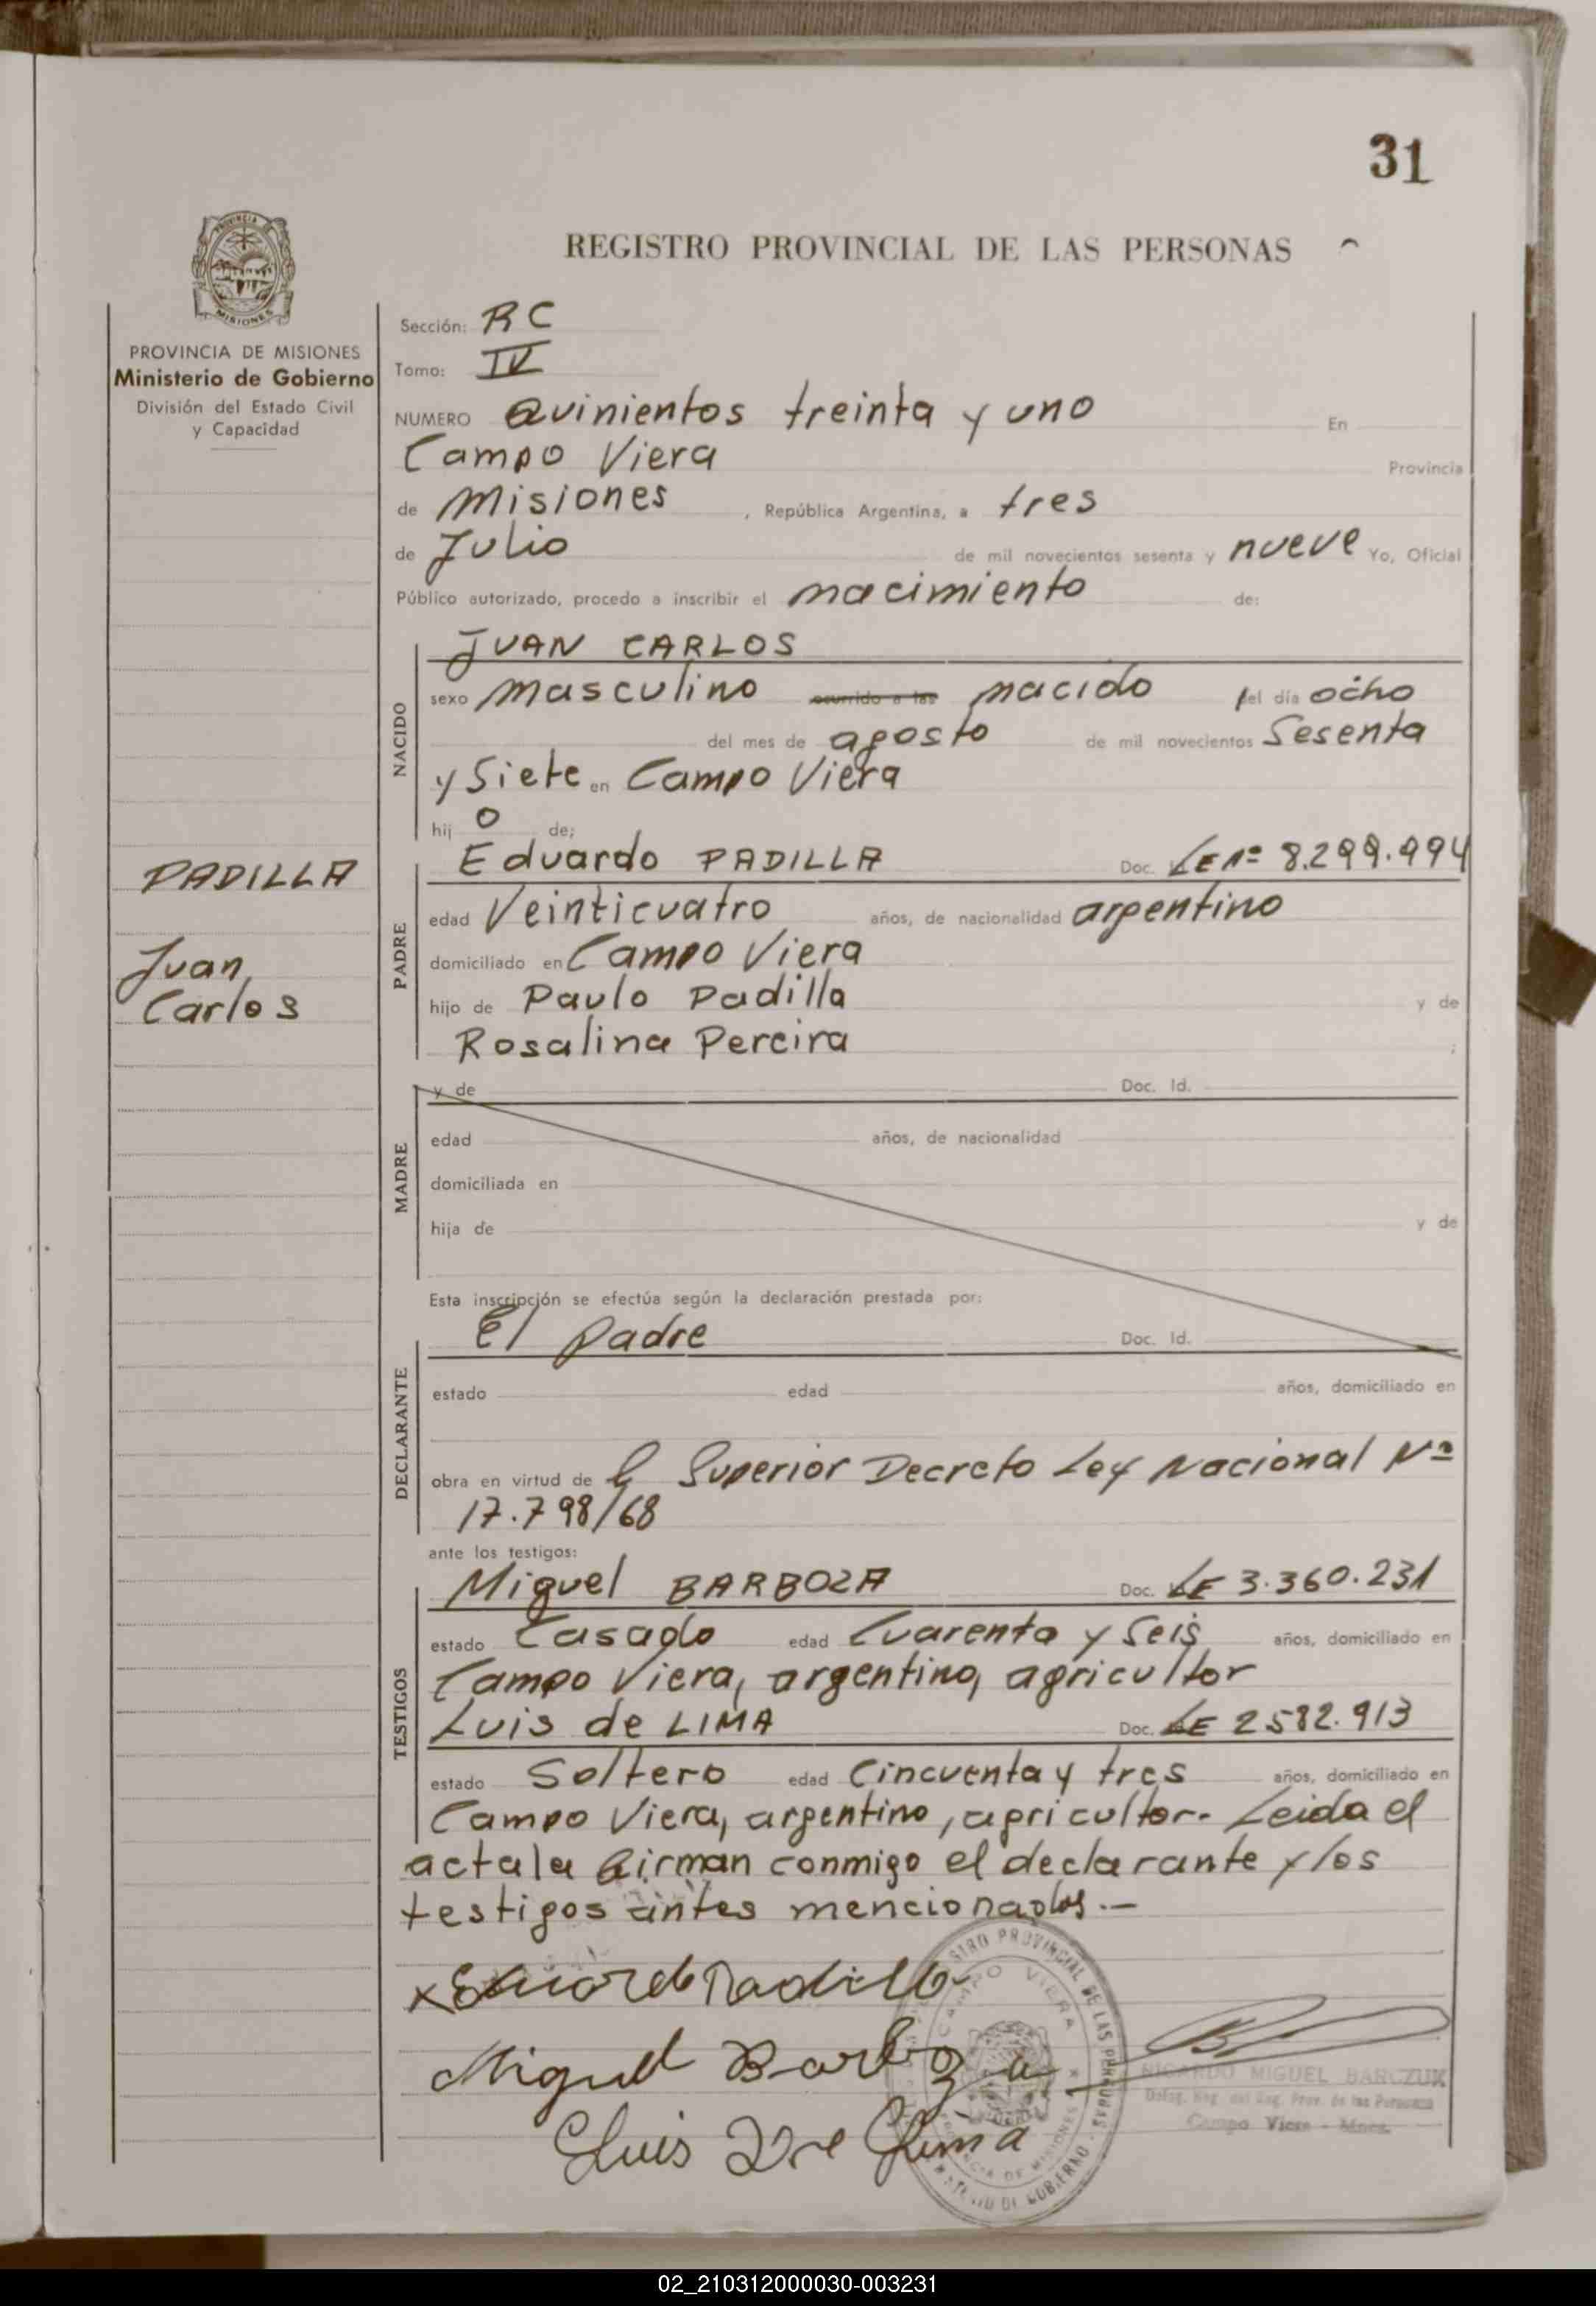 31
REGISTRO PROVINCIAL DE LAS PERSONAS
PROVINCIA DE MISIONES
Ministerio de Gobierno
División del Estado Civil
y Capacidad
PADILLA
Juan
Carlos
Sección: RC
Tomo: IV
NUMERO Quinientos treinta y uno En
Campo Viera Provincia
de Misiones, República Argentina, a tres
de Julio de mil novecientos sesenta y nueve Yo, Oficial
Público autorizado, procedo a inscribir el nacimiento de:
NACIDO
JUAN CARLOS
sexo masculino ocurrido a las nacido el día ocho
del mes de agosto de mil novecientos Sesenta
y Siete en Campo Viera
hij o de;
PADRE
Eduardo PADILLA Doc. LE Nº 8.299.994
edad Veinticuatro años, de nacionalidad argentino
domiciliado en Campo Viera
hijo de Paulo Padilla y de
Rosalina Pereira ;
MADRE
y de Doc. Id.
edad años, de nacionalidad
domiciliada en
hija de y de
Esta inscripción se efectúa según la declaración prestada por:
DECLARANTE
El padre Doc. Id.
estado edad años, domiciliado en
obra en virtud de Superior Decreto Ley Nacional Nº
17.798/68
ante los testigos:
TESTIGOS
Miguel BARBOZA Doc. LE 3.360.231
estado Casado edad Cuarenta y Seis años, domiciliado en
Campo Viera, argentino, agricultor
Luis de LIMA Doc. LE 2582.913
estado Soltero edad Cincuenta y tres años, domiciliado en
Campo Viera, argentino, agricultor.- Leida el
acta la firman conmigo el declarante y los
testigos antes mencionados.—
x Eduardo Padilla
Miguel Barboza
Luis De Lima
REGISTRO PROVINCIAL DE LAS PERSONAS
CAMPO VIERA
PROVINCIA DE MISIONES
MINISTERIO DE GOBIERNO
RICARDO MIGUEL BARCZUK
Deleg. Reg. del Reg. Prov. de las Personas
Campo Viera - Mnes.
02_210312000030-003231